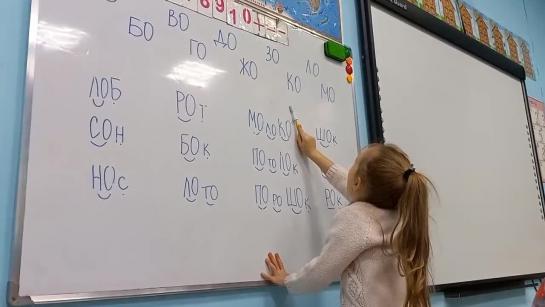 БО ВО ГО ДО ЖО ЗО КО ЛО МО
ЛОБ РОТ МОЛОКО ШОК
СОН БОК ПОТОЛОК
НОС ЛОТО ПОРОШОК РОК